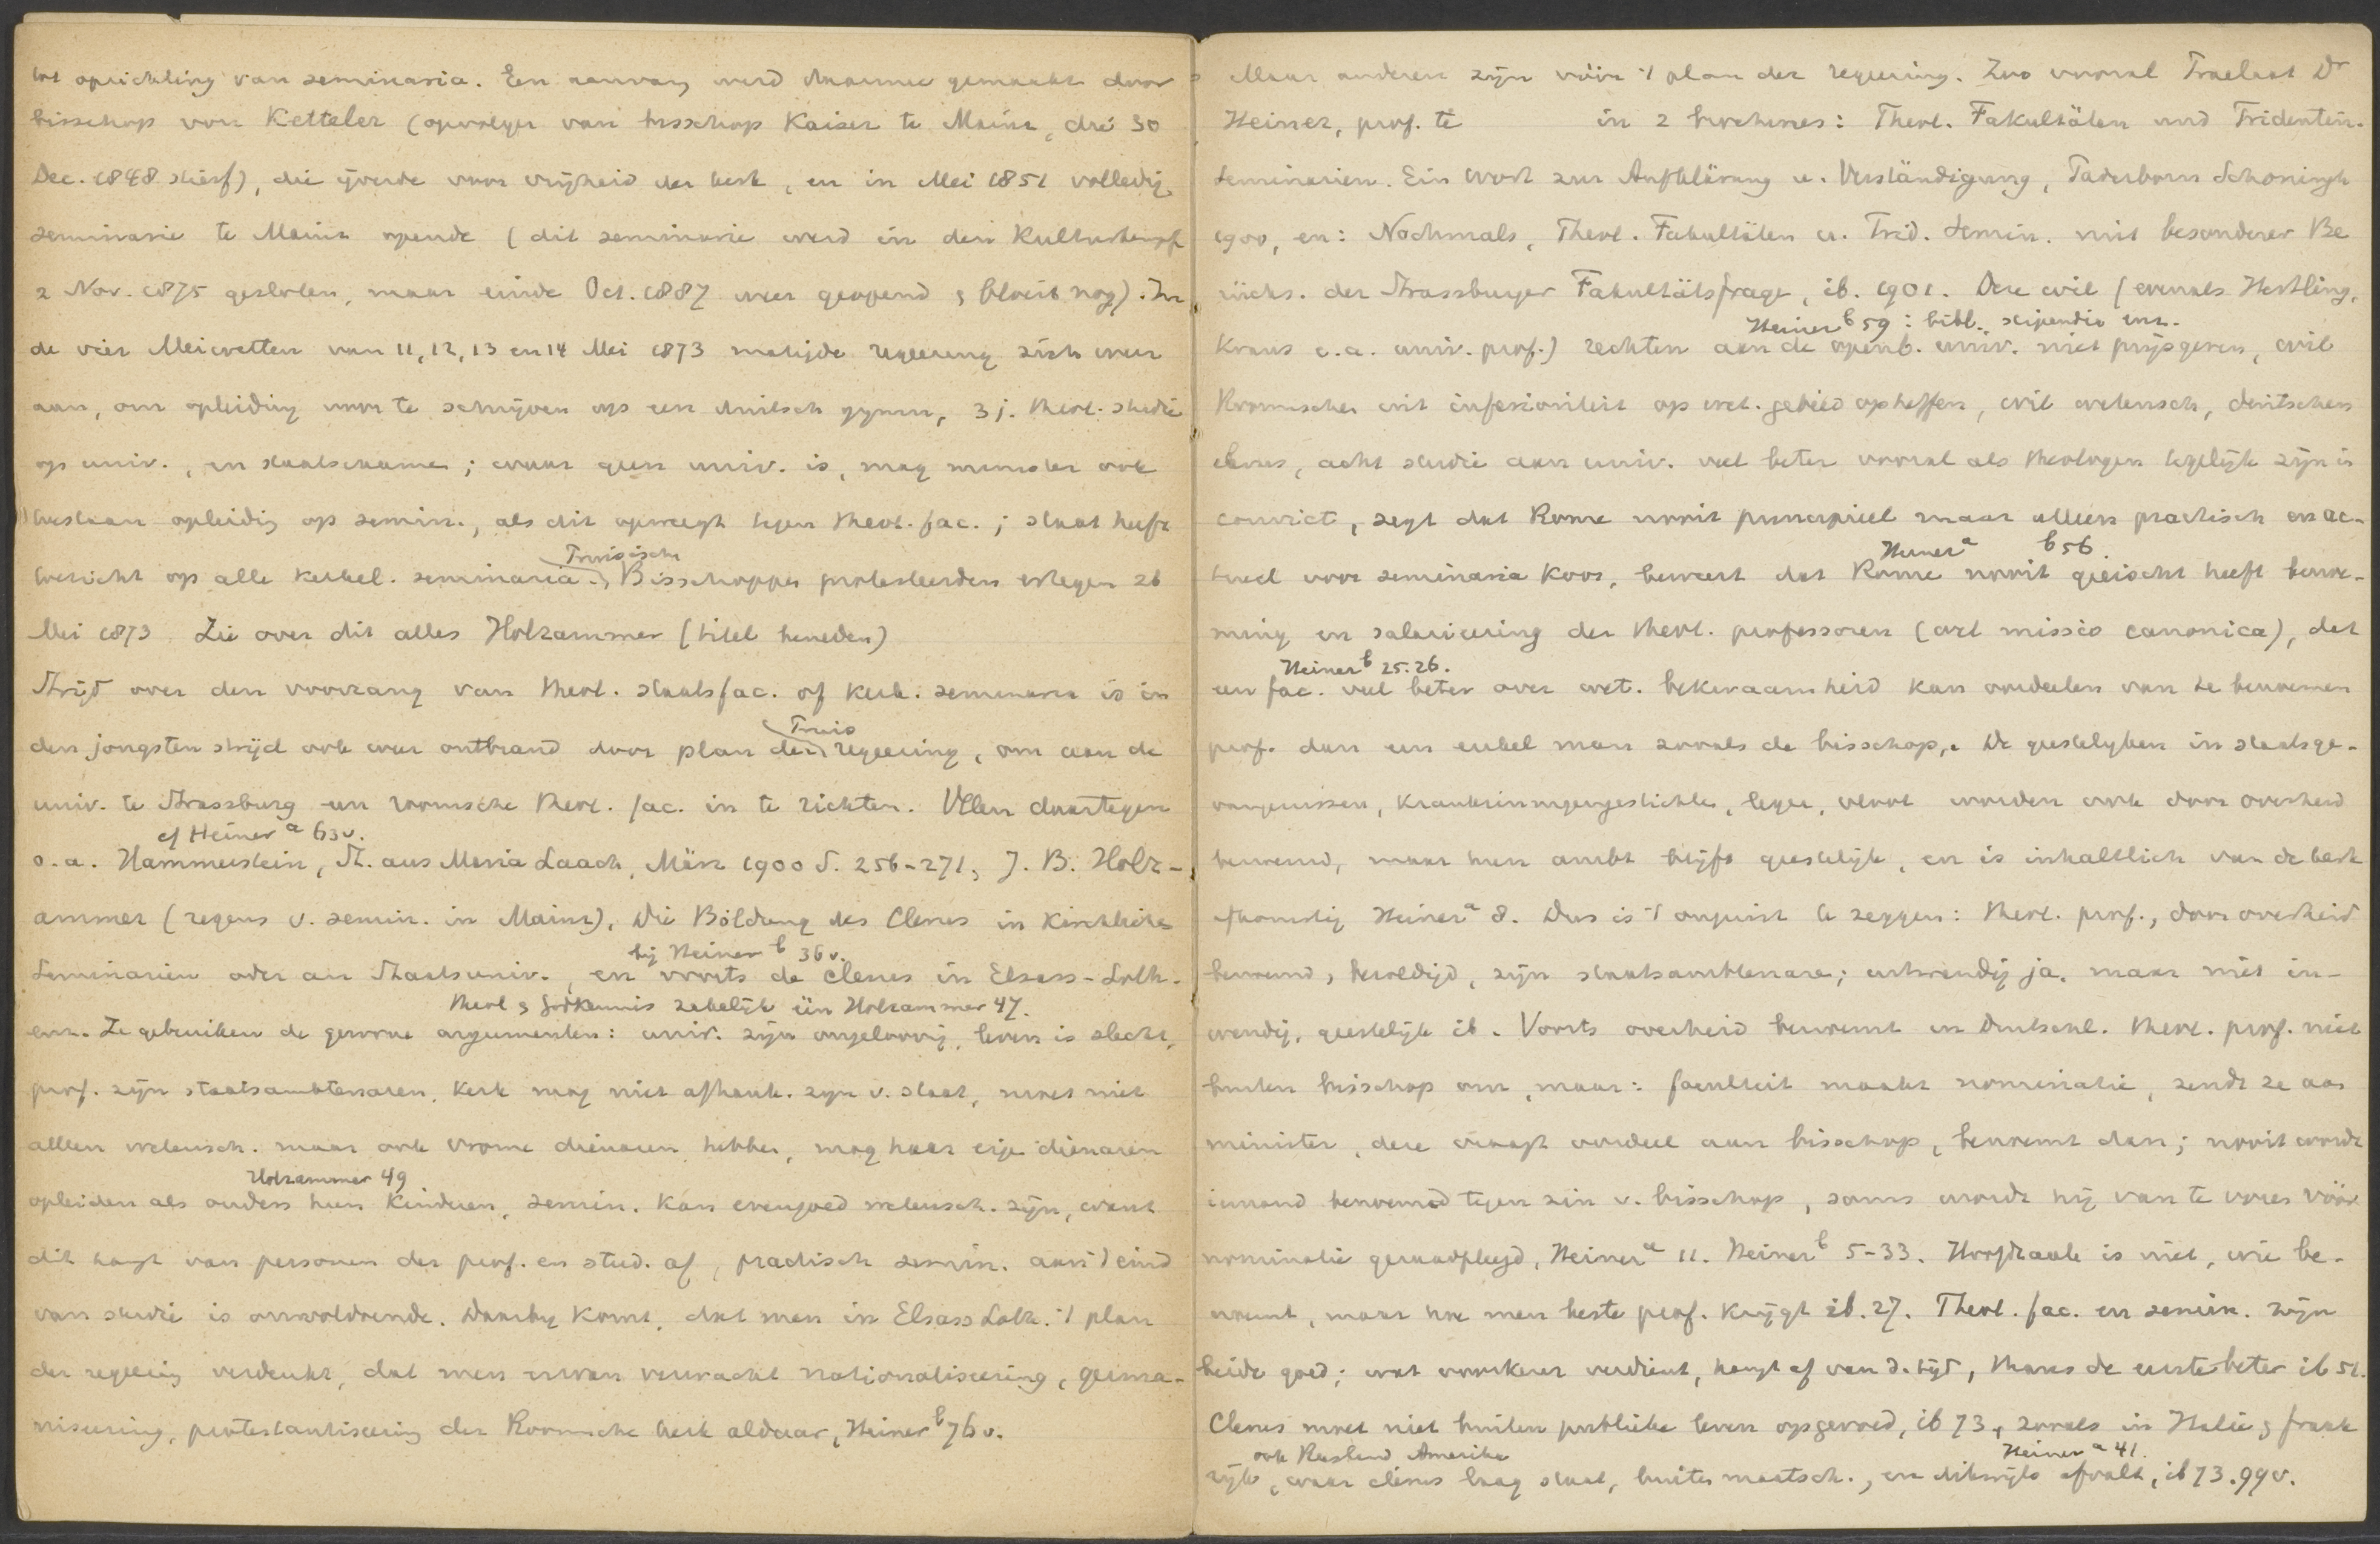 tot oprichting van seminaria. Een aanvang werd daarmee gemaakt door
bisschop von Ketteler (opvolger van bisschop Kaiser te Mainz, die 30
Dec. 1848 stierf), die ijverde voor vrijheid der kerk, en in Mei 1851 volledig
seminarie te Mainz opende (dit seminarie werd in den Kulturkampf
2 Nov. 1875 gesloten, maar einde Oct. 1887 weer geopend & bloeit nog). In
de vier Meiwetten van 11, 12, 13 en 14 Mei 1873 matigde regeering zich weer
aan, om opleiding voor te schrijven op een duitsch gymn., 3 j. theol. studie
op univ., en staatsexamen; waar geen univ. is, mag minister ook
toestaan opleidig op semin., als dit opweegt tegen theol. fac.; staat heeft
toezicht op alle kerkel. seminaria. Pruisische Bisschoppen protesteerden ertegen 26
Mei 1873. Zie over dit alles Holzammer (titel beneden)
Strijd over den voorrang van theol. staatsfac. of kerk. seminaria is in
den jongsten strijd ook weer ontbrand door plan der Pruis regeering, om aan de
univ. te Strassburg een roomsche theol. fac. in te richten. Velen daartegen
cf Heiner a 63 v.
o.a. Hammerstein, St. aus Maria Laach, März 1900 S. 256-271, J. B. Holz-
ammer (regens v. semin. in Mainz), Die Bildung des Clerus in Kirchlichen
Seminarien oder an Staatsuniv., en voorts de clerus in Elsass-Loth.
bij Heiner b 36 v.
theol & godkennis zakelijk één Holzammer 47.
enz. Ze gebruiken de gewone argumenten: univ. zijn ongeloovig, leven is slecht,
prof. zijn staatsambtenaren, kerk mag niet afhank. zijn v. staat, moet niet
alleen wetensch. maar ook vrome dienaren hebben, mag haar eige dienaren
Holzammer 49
opleiden als ouders hun kinderen, semin. kan evengoed wetensch. zijn, want
dit hangt van personen der prof. en stud. af, practisch semin. aan 't eind
van studie is onvoldoende. Daarbij komt, dat men in Elsass Loth. 't plan
der regeering verdenkt, dat men ervan verwacht nationaliseering, germa-
niseering, protestantiseering der Roomsche kerk aldaar, Heiner b 76 v.
Maar anderen zijn vóór 't plan der regeering. Zoo vooral Praelaat Dr
Heiner, prof. te in 2 brochures: Theol. Fakultäten und Tridentin.
Seminarien. Ein Wort zur Aufklärung u. Verständigung, Paderborn Schoningh
1900, en: Nochmals, Theol. Fakultäten u. Trid. Semin. mit besonderer Be
rücks. der Strassburger Fakultätsfrage, ib. 1901. Deze wil (evenals Hertling,
Heiner b 59: bibl. stipendia enz.
Kraus e.a. univ. prof.) rechten aan de openb. univ. niet prijsgeven, wil
Roomschen uit inferioriteit op wet. gebied opheffen, wil wetensch, duitschen
clerus, acht studie aan univ. veel beter vooral als theologen tegelijk zijn in
convict, zegt dat Rome nooit principieel maar alleen practisch en ac-
Heiner a b 56.
tueel voor seminaria koos, beweert dat Rome nooit geëischt heeft benoe-
ming en salarieering der theol. professoren (wel missio canonica), dat
Heiner b 25.26.
een fac. veel beter over wet. bekwaamheid kan oordeelen van te benoemen
prof. dan een enkel man zooals de bisschop,. De geestelijken in staatsge-
vangenissen, krankzinnigengestichten, leger, vloot worden ook door overheid
benoemd, maar hun ambt blijft geestelijk, en is inhaltlich van de kerk
afkomstig Heiner a 8. Dus is 't onjuist te zeggen: theol. prof., door overheid
benoemd, bezoldigd, zijn staatsambtenaren; uitwendig ja, maar niet in-
wendig, geestelijk ib. Voorts overheid benoemt in Duitschl. theol. prof. niet
buiten bisschop om, maar: faculteit maakt nominatie, zendt ze aan
minister, deze vraagt oordeel aan bisschop, benoemt dan; nooit wordt
iemand benoemd tegen zin v. bisschop, soms wordt hij van te voren vóór
nominatie geraadpleegd, Heiner a 11. Heiner b 5-33. Hoofdzaak is niet, wie be-
noemt, maar hoe men beste prof. krijgt ib. 27. Theol. fac. en semin. zijn
beide goed; wat voorkeur verdient, hangt af van d. tijd, thans de eerste beter ib 51.
Clerus moet niet buiten publieke leven opgevoed, ib 73, zooals in Italië & frank
ook Rusland Amerika
Heiner a 41.
rijk, waar clerus laag staat, buiten maatsch., en dikwijls afvalt, ib 73. 99 v.